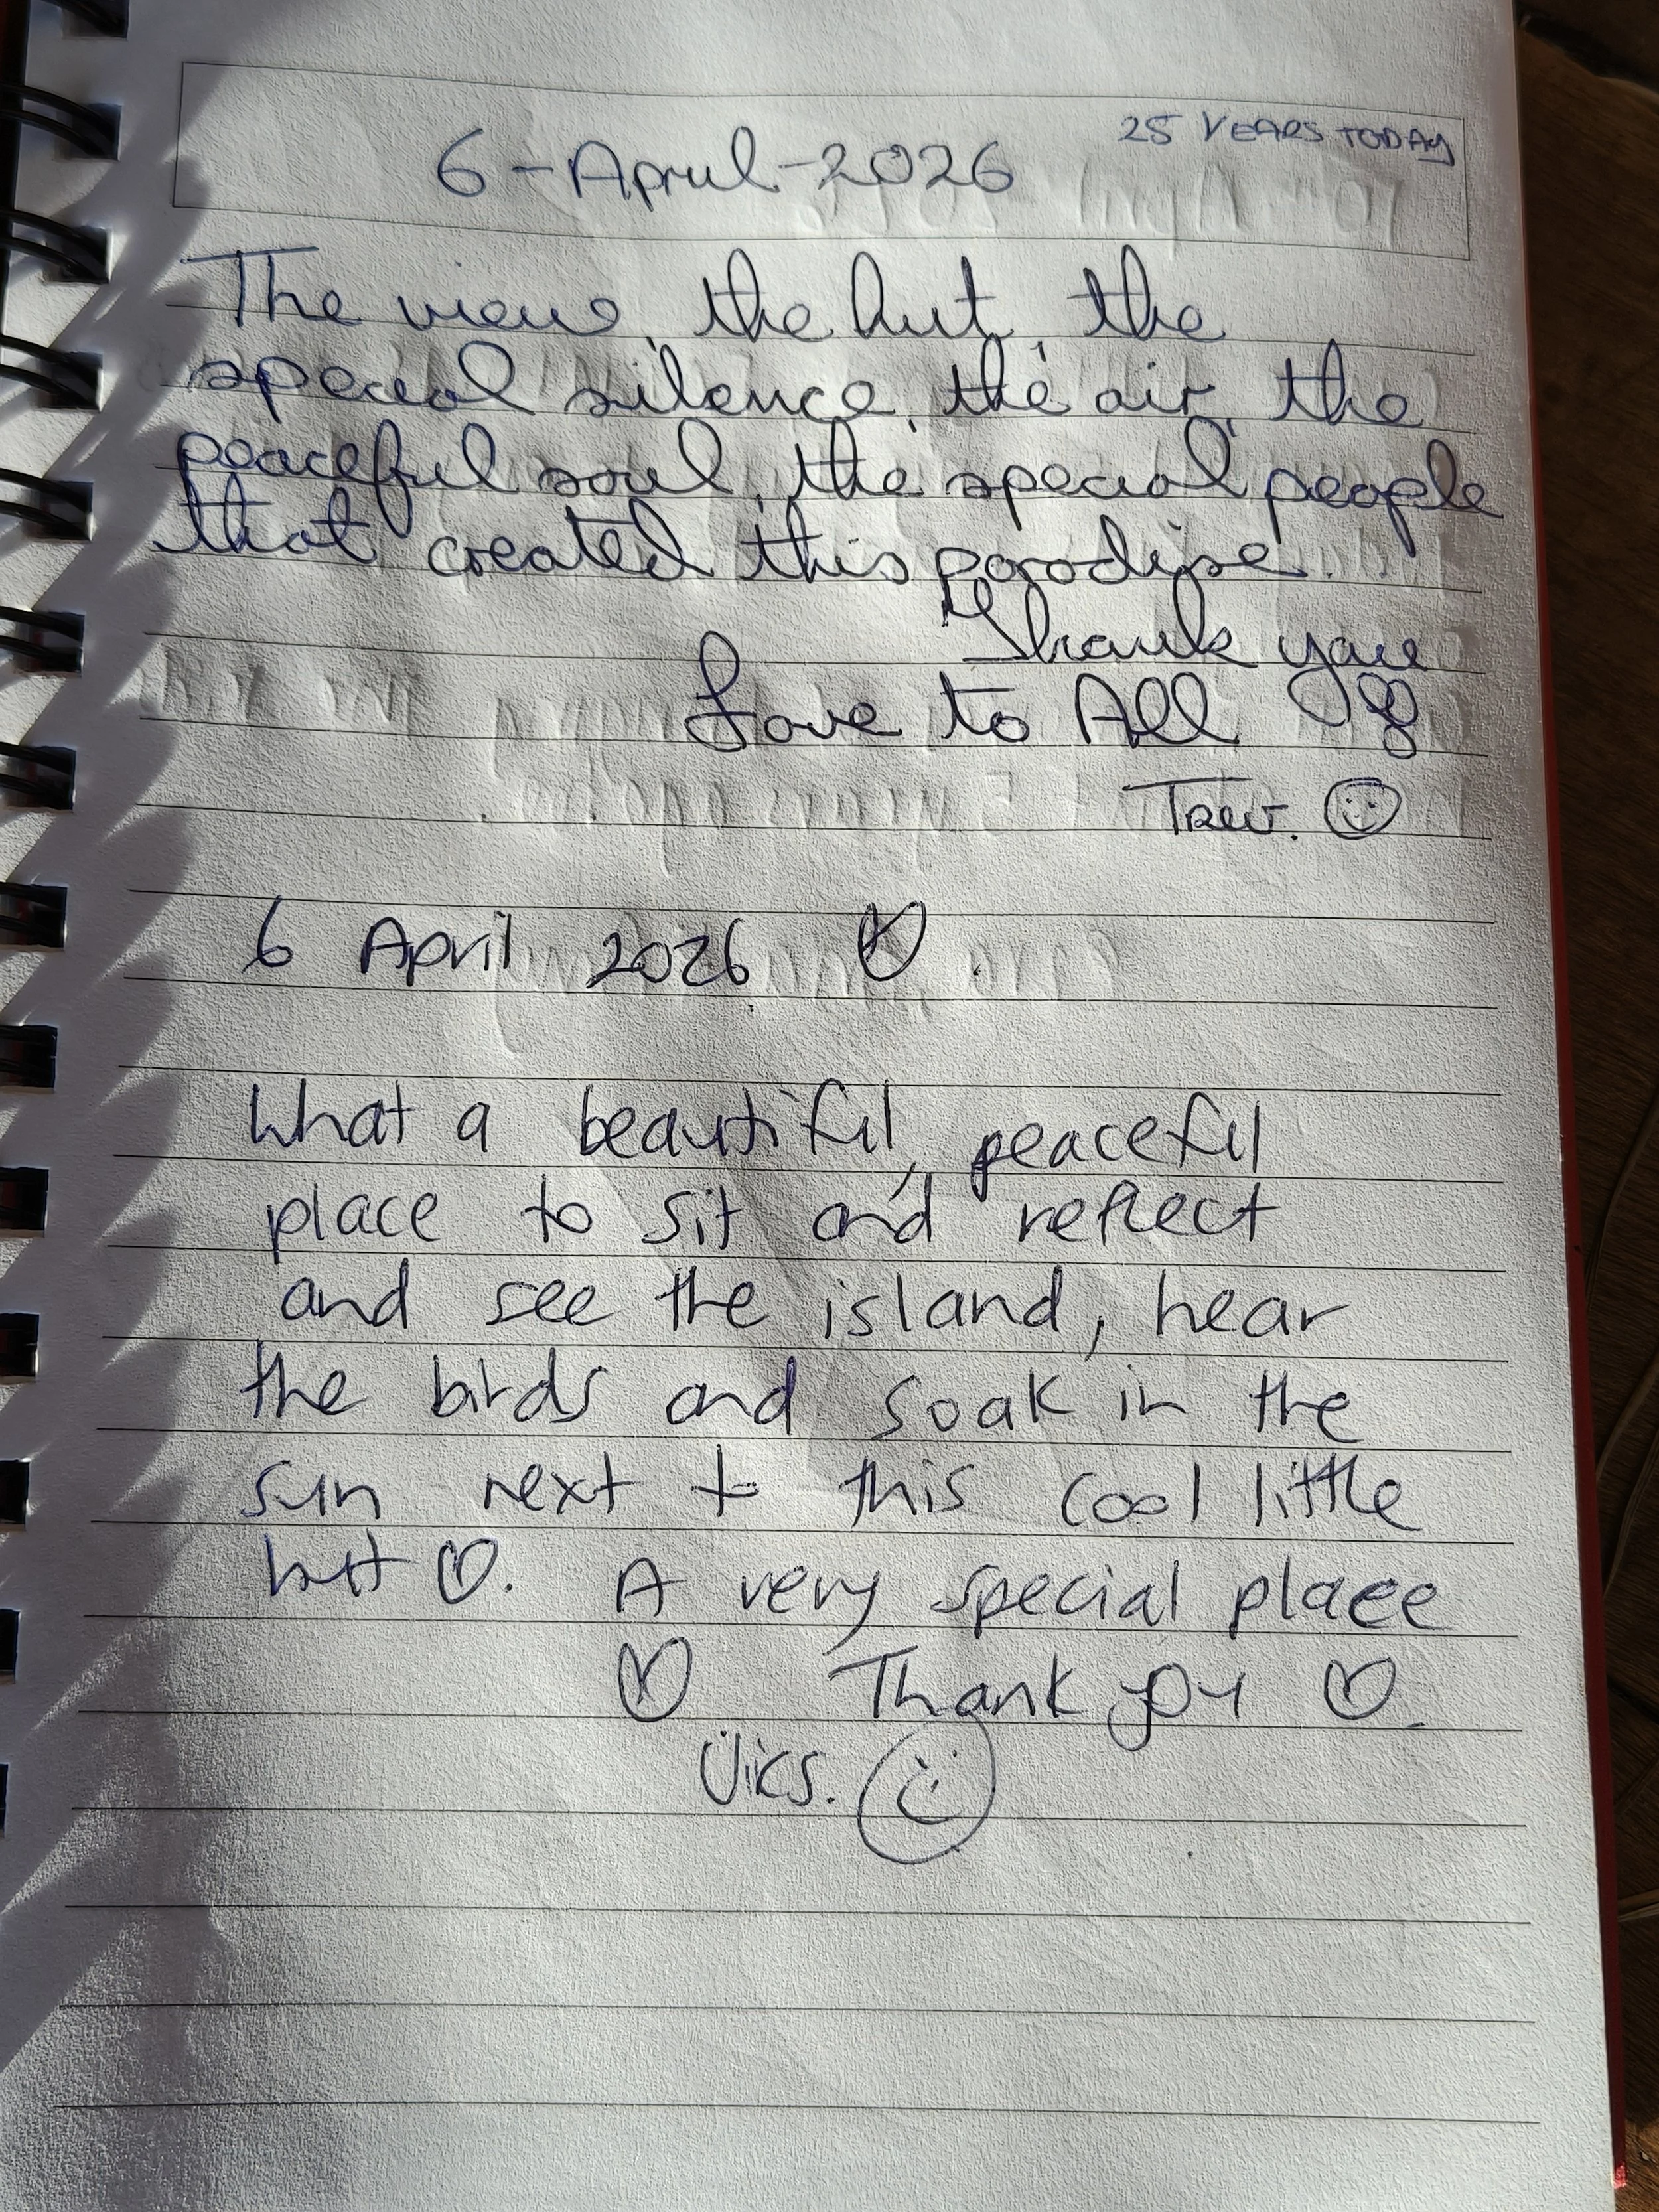 25 YEARS TODAY
6-April-2026
The view, the hut, the
special silence, the air, the
peaceful soul, the special people
that created this paradise.
Thank you
Love to All
6 April 2026
What a beautiful, peaceful
place to sit and reflect
and see the island, hear
the birds and soak in the
sun next to this cool little
hut. A very special place
Thank you
Vics.